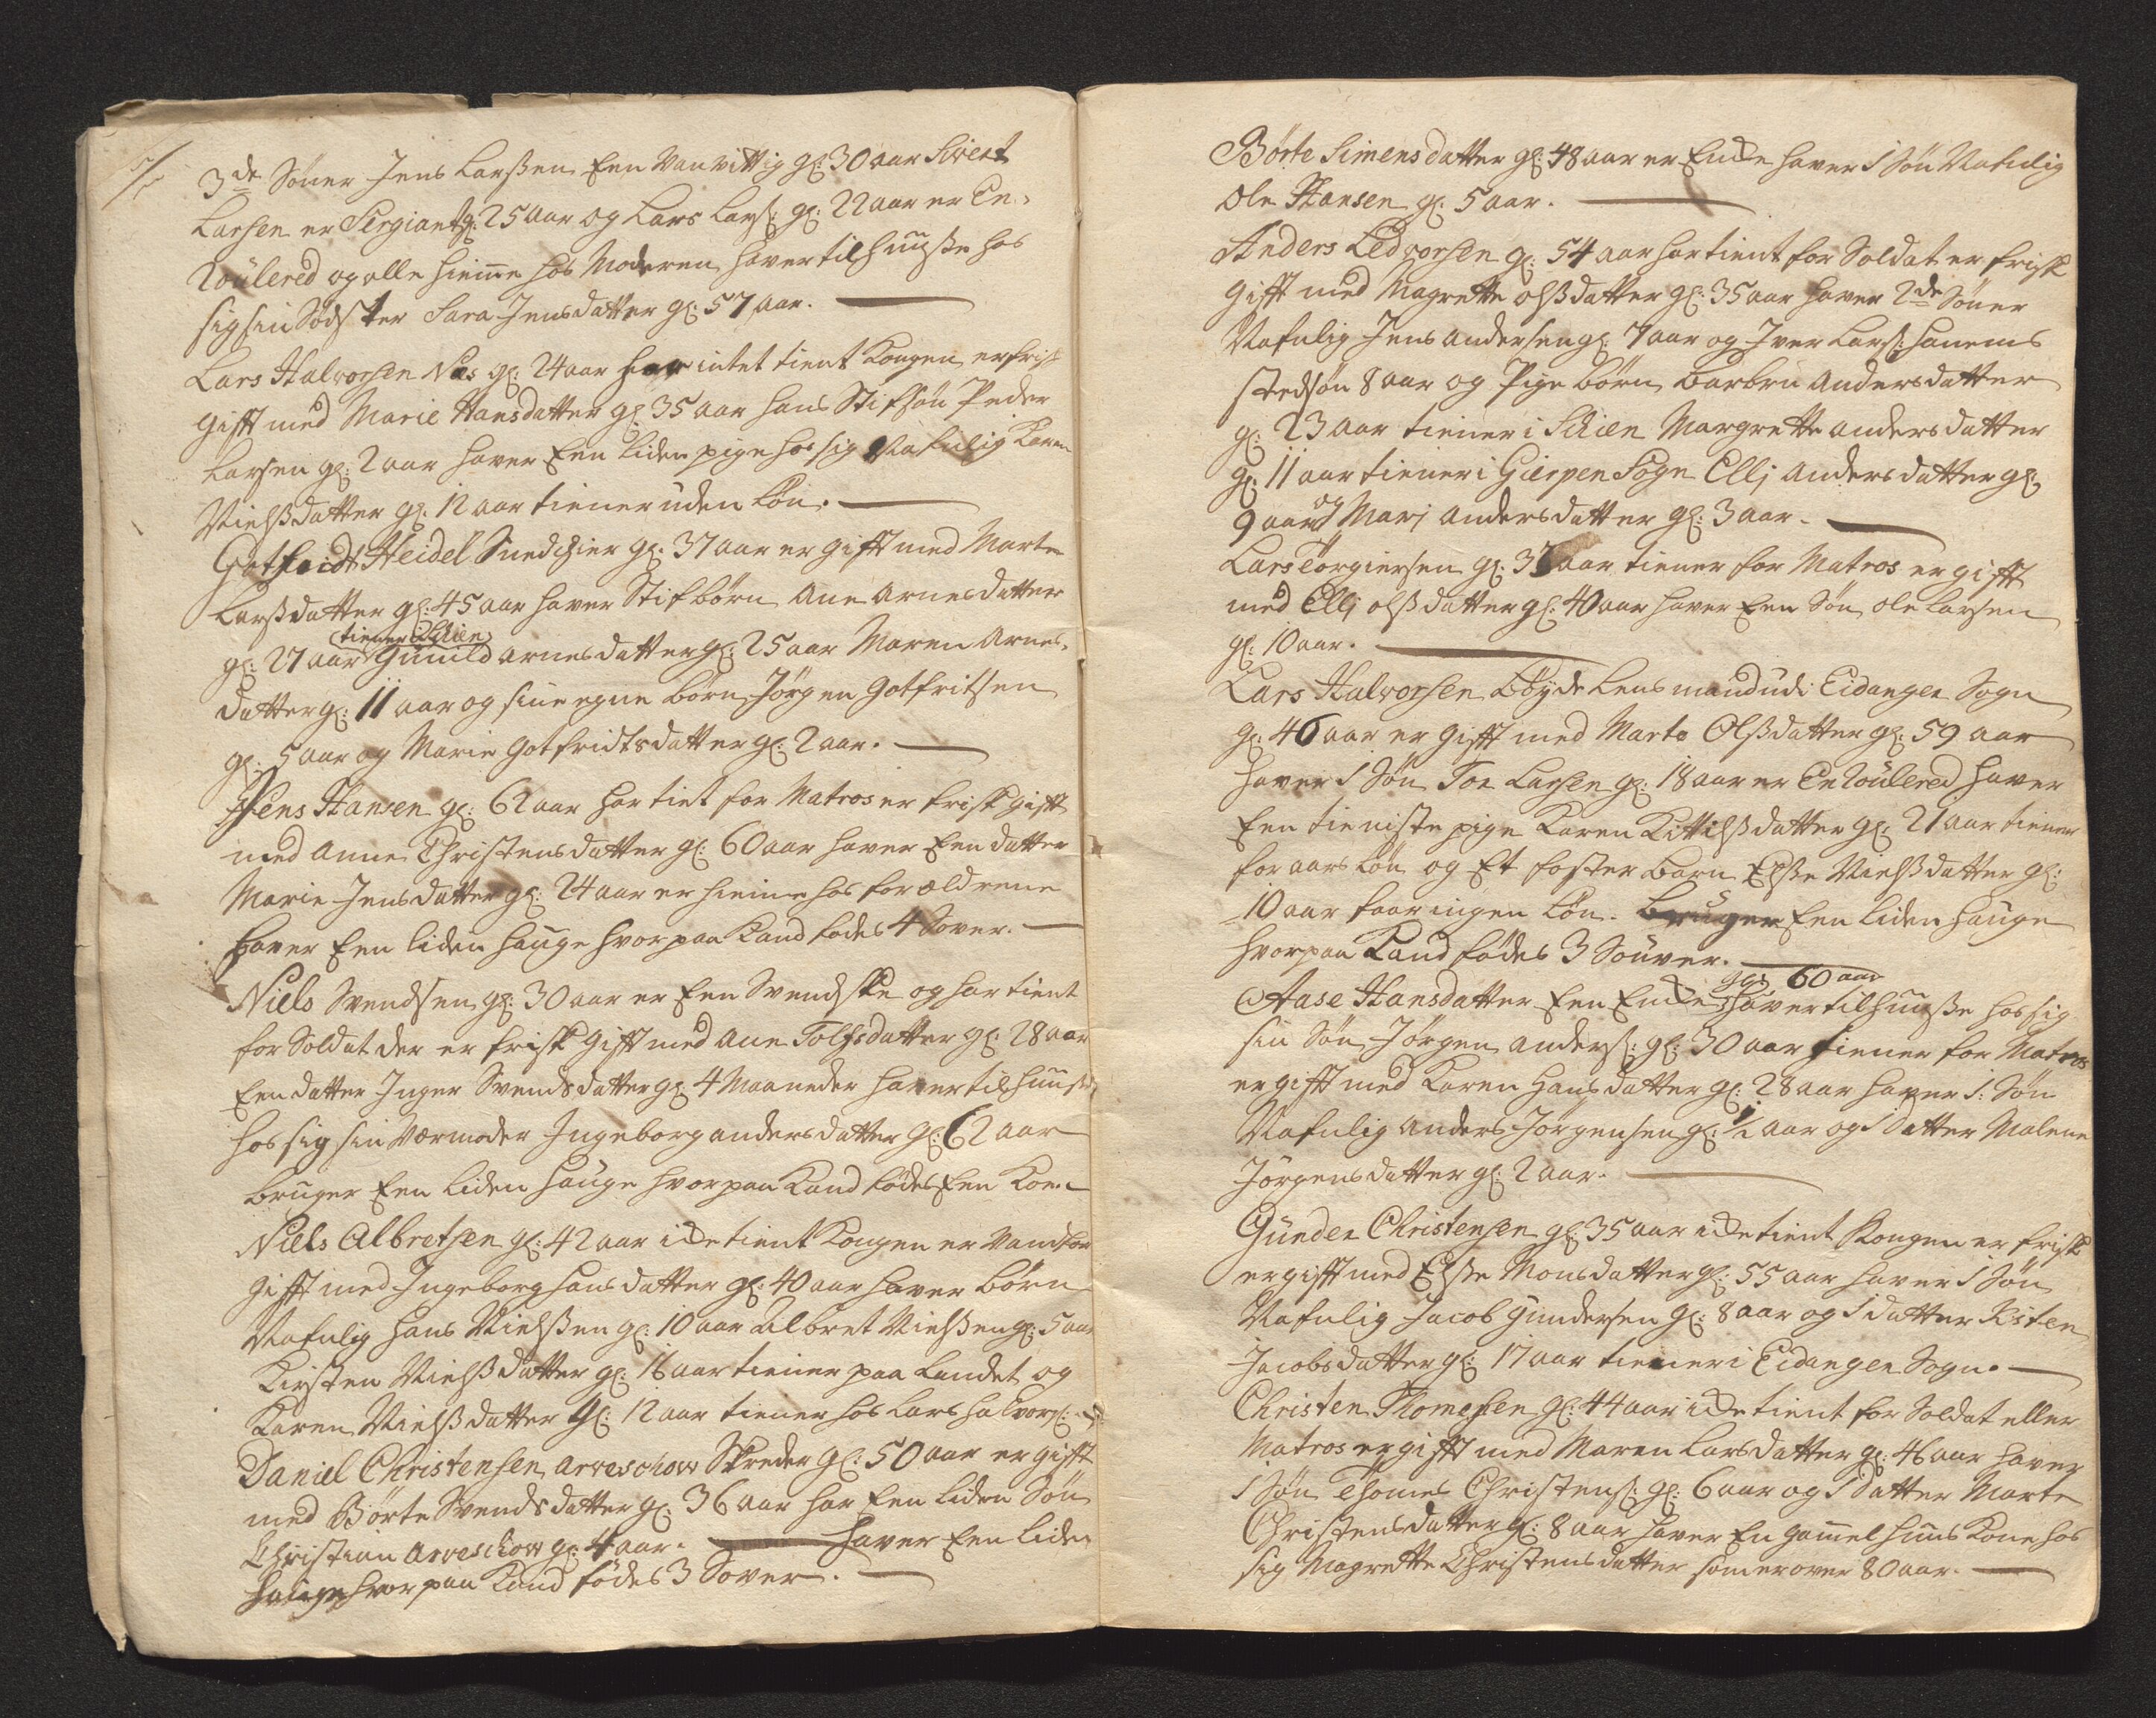 3de Söner Jens Larßen Een Vanvittig gl: 30 aar Siwert
Larsen er Sergiant gl: 25 aar og Lars Lars: gl: 22 aar er En-
roulered og alle hieme hos Moderen haver til huuße hos
sig sin Södster Sara Jensdatter gl: 57 aar.
Lars Halvorsen Næs gl: 24 aar har intet tient Kongen er frisk
gifft med Marie Hansdatter gl: 35 aar hans Stifsøn Peder
Larsen gl: 2 aar haver Een liden pige hos sig Nafnlig Karen
Nielsdatter gl: 12 aar tiener uden Løn.
Gotfridt Heidel Snedkier gl: 37 aar er gifft med Marte
Larsdatter gl: 45 aar haver Stifbörn Ane Arnesdatter
tiener i Schien
gl: 27 aar Gunild Arnesdatter gl: 25 aar Maren Arnes-
datter gl: 11 aar og sine egne börn Jörgen Gotfritsen
gl: 5 aar og Marie Gotfridtsdatter gl: 2 aar.
Jens Hansen gl: 62 aar har tient for Matros er frisk gifft
med Anne Christensdatter gl: 60 aar haver Een datter
Marie Jensdatter gl: 24 aar er hieme hos forældrene
haver Een liden hauge hvorpaa Kand födes 4 Sover.
Niels Svendsen gl: 30 aar er Een Svendske og har tient
for Soldat der er frisk gifft med Ane Tolfsdatter gl: 28 aar
Een datter Inger Svendsdatter gl: 4 Maaneder haver til huuße
hos sig sin Værmoder Ingeborg andersdatter gl: 62 aar
bruger Een liden hauge hvorpaa Kand födes Een Koe.
Niels Albretsen gl: 42 aar icke tient Kongen er
gifft med Ingeborg hansdatter gl: 40 aar haver börn
Nafnlig hans Nielßen gl: 10 aar Albret Nielßen gl: 5 aar
Kirsten Nielsdatter gl: 16 aar tiener paa Landet og
Karen Nielsdatter gl: 12 aar tiener hos Lars halvors:
Daniel Christensen Arveschow Skreder gl: 50 aar er gifft
med Börte Svendsdatter gl: 36 aar har Een liden Søn
Christian Arveschow gl: 4 aar. haver Een liden
hauge hvorpaa Kand födes 3 Sover.
Börte Simensdatter gl: 48 aar er Encke haver 1 Søn Nafnlig
Ole Hansen gl: 5 aar.
Anders Ledvorsen gl: 54 aar har tient for Soldat er frisk
gifft med Magrette olsdatter gl: 35 aar haver 2de Söner
Nafnlig Jens andersen gl: 7 aar og Iver Lars: hanems
stedsøn 8 aar og Pige börn Barbru Andersdatter
gl: 23 aar tiener i Schien Margrette andersdatter
gl: 11 aar tiener i Gierpen Sogn Ellj Andersdatter gl:
9 aar og Mari Andersdatter gl: 3 aar.
Lars Törgiersen gl: 37 aar tiener for Matros er gifft
med Ellj olsdatter gl: 40 aar haver Een Søn ole Larsen
gl: 10 aar.
Lars Halvorsen Böyde Lensmand udi Eidanger Sogn
gl: 46 aar er gifft med Marte Olsdatter gl: 59 aar
haver 1 Søn Tor Larsen gl: 18 aar er Enroulered haver
Een tieniste pige Karen Kittilsdatter gl: 21 aar tiener
for aars Løn og Et foster barn Elße Nielsdatter gl:
10 aar faar ingen Løn. bruger Een liden hauge
hvorpaa Kand födes 3 Souver.
gl: 60 aar
Aase Hansdatter Een Encke haver til huuße hos sig
sin Søn Jörgen anders: gl: 30 aar tiener for Matros
er gifft med Karen Hansdatter gl: 28 aar haver 1: Søn
Nafnlig Anders Jörgensen gl: 1/2 aar og 1 datter Malene
Jörgensdatter gl: 2 aar.
Gunder Christensen gl: 35 aar icke tient Kongen er frisk
er gifft med Elße Monsdatter gl: 55 aar haver 1 Søn
Nafnlig Jacob Gundersen gl: 8 aar og 1 datter Kisten
Jacobsdatter gl: 17 aar tiener i Eidanger Sogn.
Christen Thomesen gl: 44 aar icke tient for Soldat eller
Matros er gifft med Maren Larsdatter gl: 46 aar haver
1 Søn Thomes Christens: gl: 6 aar og 1 datter Marte
Christensdatter gl: 8 aar haver En gammel huus Kone hos
sig Magrette Christensdatter som er over 80 aar.